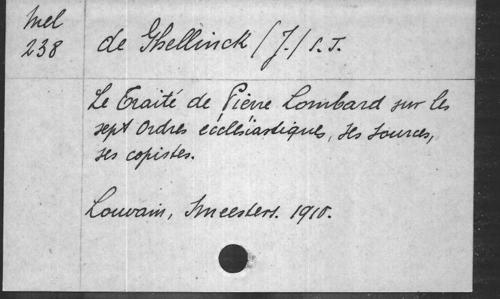 Mel
238
de Ghellinck (J.) S.J.
Le Traité de Pierre Lombard sur les
sept ordres ecclésiastiques, ses sources,
ses copistes.
Louvain, Smeesters. 1910.